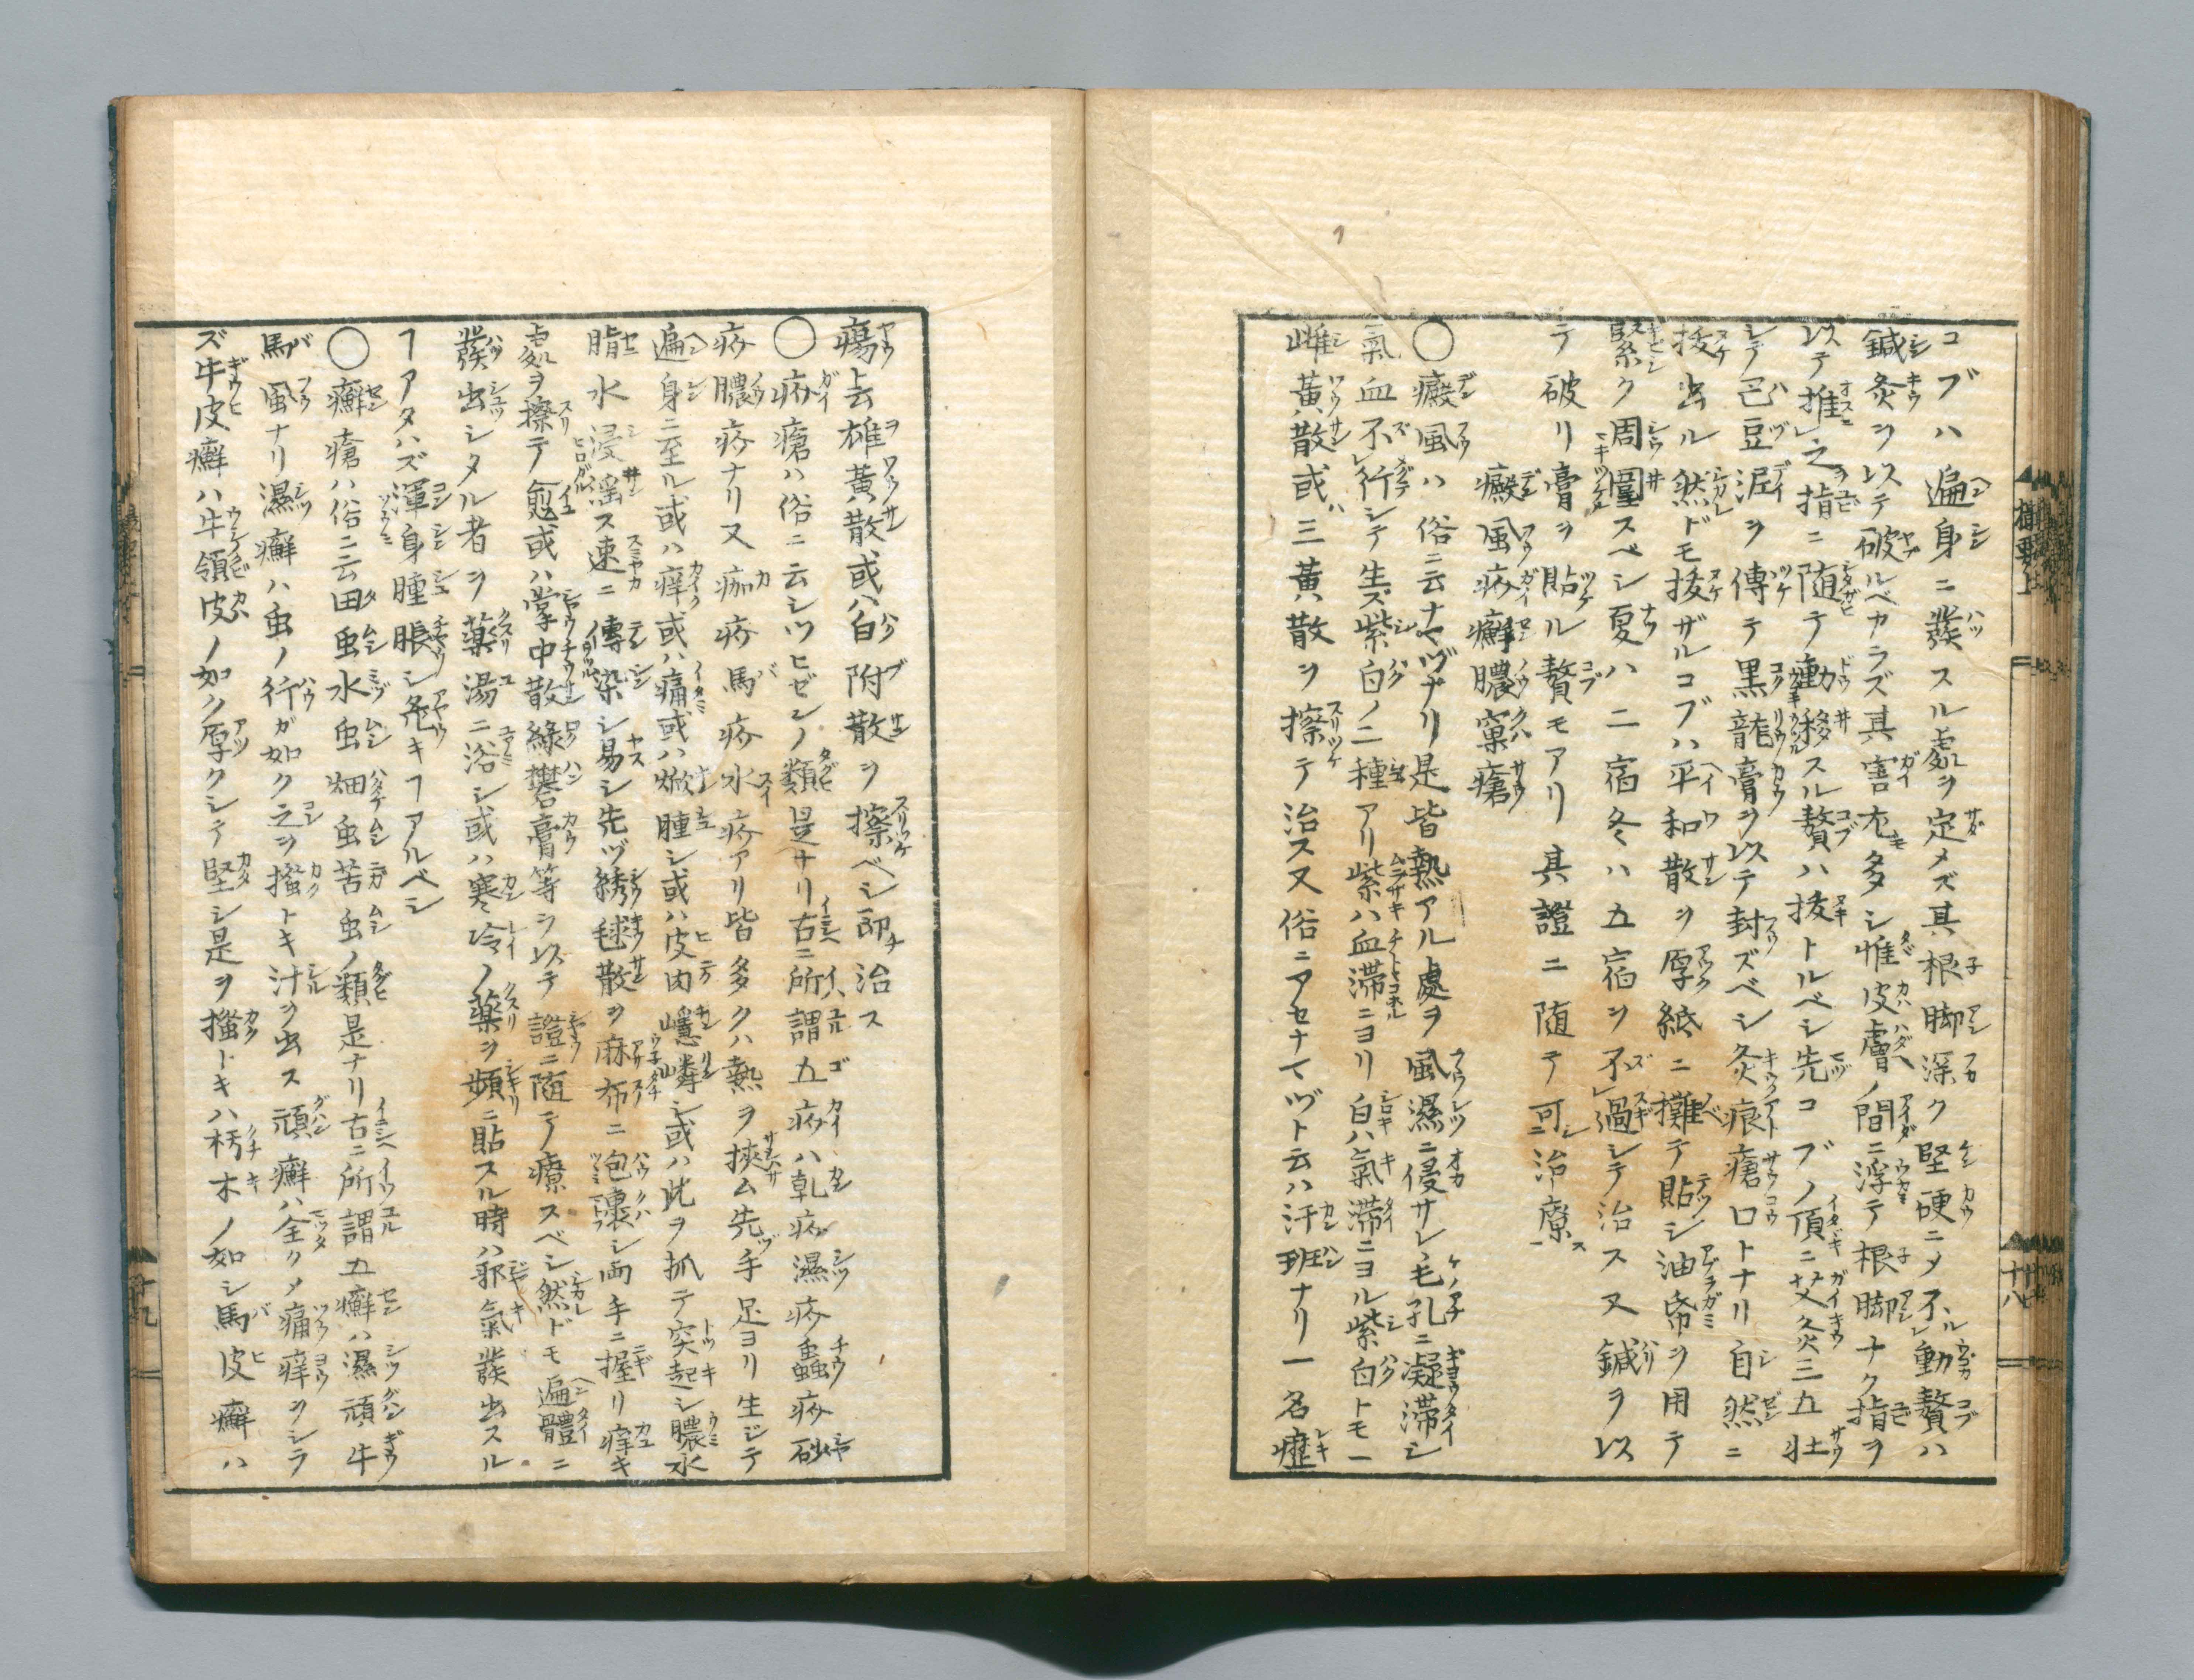 コブハ遍身ニ發スル處ヲ定メズ其根脚深ク堅硬ニメ不動贅ハ
鍼灸ヲ以テ破ルベカラズ其害尤多シ惟皮膚ノ間ニ浮テ根脚ナク指ヲ
以テ推之指ニ随テ動移スル贅ハ抜トルベシ先コブノ頂ニ艾灸三五壮
シテ巴豆泥ヲ傅テ黒龍膏ヲ以テ封ズベシ灸痕瘡口トナリ自然ニ
抜出ル然ドモ抜ザルコブハ平和散ヲ厚紙ニ攤テ貼シ油帋ヲ用テ
緊ク周圍スベシ夏ハ二宿冬ハ五宿ヲ不過シテ治ス又鍼ヲ以
テ破リ膏ヲ貼ル贅モアリ其證ニ随テ可治療
癜風疥癬膿窠瘡
〇癜風ハ俗ニ云ナマヅナリ是皆熱アル處ヲ風濕ニ侵サレ毛孔ニ凝滞シ
氣血不行シテ生ズ紫白ノ二種アリ紫ハ血滞ニヨリ白ハ氣滞ニヨル紫白トモ一
雌黃散或ハ三黃散ヲ擦テ治ス又俗ニアセナマヅト云ハ汗班ナリ一名癧
瘍ト云雄黃散或ハ白附散ヲ擦ベシ即チ治ス
〇疥瘡ハ俗ニ云シツヒゼンノ類是ナリ古ニ所謂五疥ハ乾疥濕疥蟲疥砂
疥膿疥ナリ又痂疥馬疥水疥アリ皆多クハ熱ヲ挾ム先ヅ手足ヨリ生ジテ
遍身ニ至ル或ハ痒或ハ痛或ハ焮腫シ或ハ皮肉嶾嶙シ或ハ此ヲ抓テ突起シ膿水
脂水浸淫ス速ニ傳染シ易シ先ヅ綉毬散ヲ麻布ニ包裹シ両手ニ握リ痒キ
處ヲ擦テ愈或ハ掌中散綠礬膏等ヲ以テ證ニ随テ療スベシ然ドモ遍體ニ
發出シタル者ヲ薬湯ニ浴シ或ハ寒冷ノ薬ヲ頻ニ貼スル時ハ邪氣發出スル
ヿアタハズ渾身腫脹シ危キヿアルベシ
〇癬瘡ハ俗ニ云田虫水虫畑虫苦虫ノ類是ナリ古ニ所謂五癬ハ濕頑牛
馬風ナリ濕癬ハ虫ノ行ガ如ク之ヲ搔トキ汁ヲ出ス頑癬ハ全クメ痛痒ヲシラ
ズ牛皮癬ハ牛領皮ノ如ク厚クシテ堅シ是ヲ搔トキハ朽木ノ如シ馬皮癬ハ